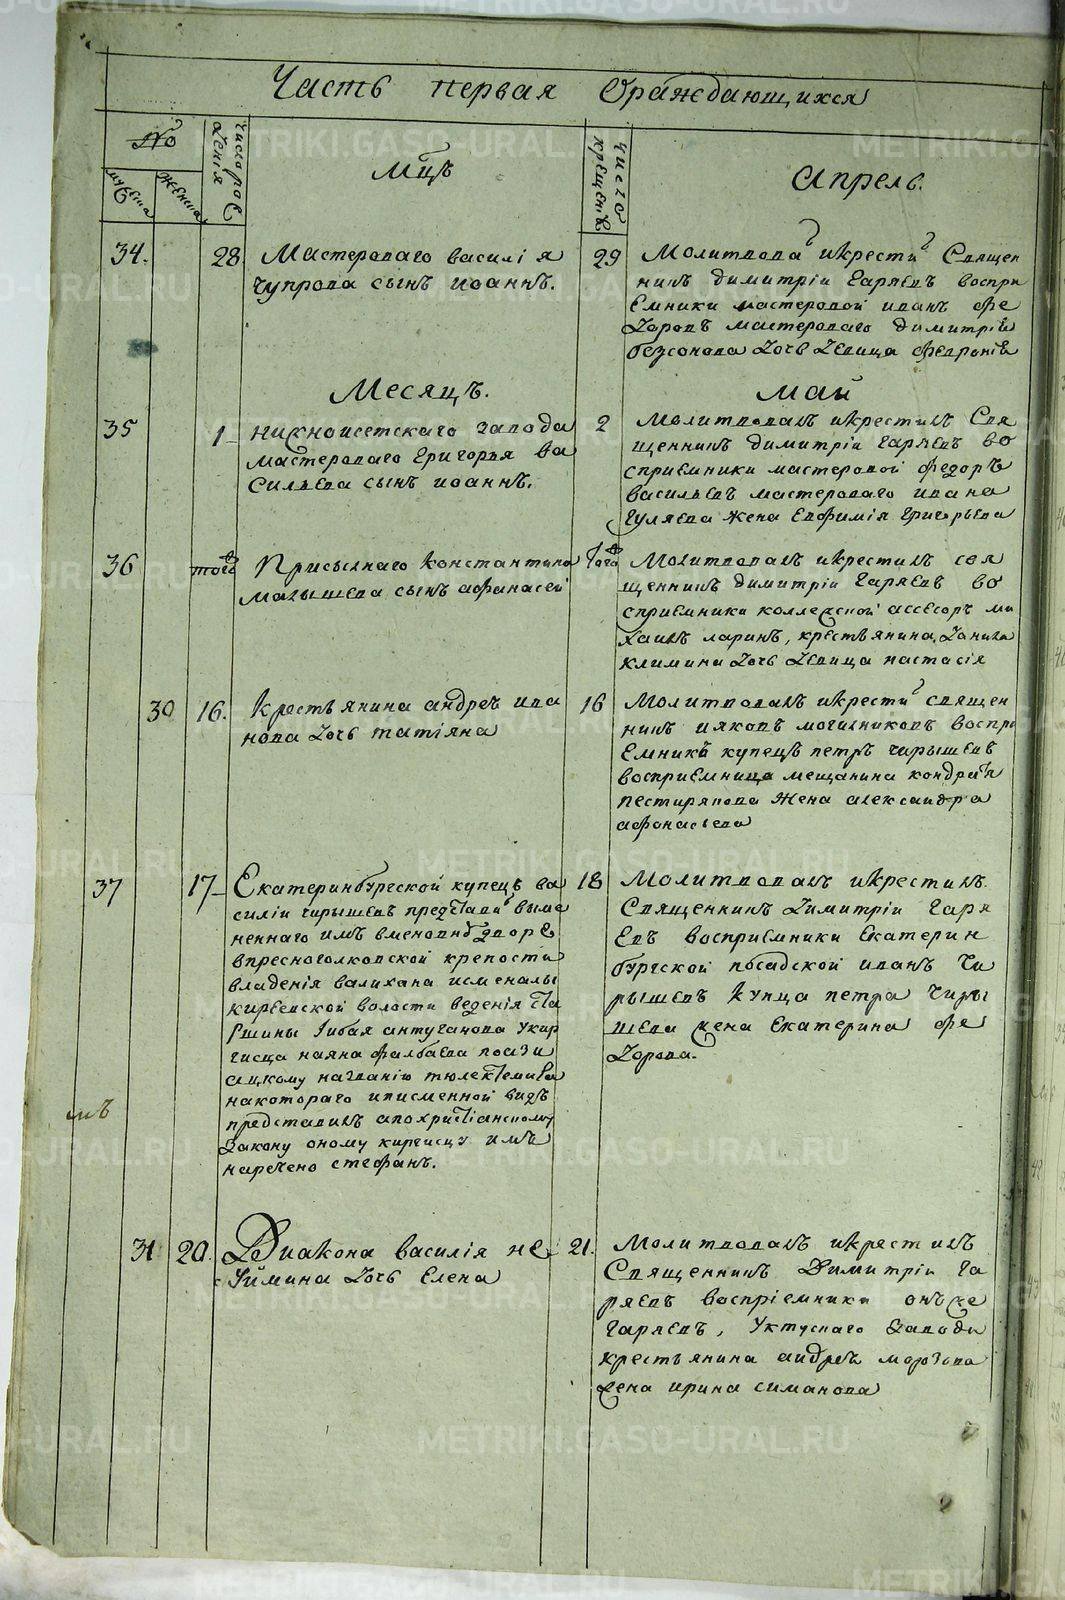 Часть первая Ораждающихся
№
мужеска
женска
число рождения
Мцъ
число крещенiя
Апрель.
34.
28
Мастероваго василiя
чупрова сынъ иоаннъ.
29
Молитвовалъ икрестилъ Священ
никъ димитрiи Гаряевъ воспри
Емники мастеровой иванъ фе
доровъ мастероваго димитрiя
безсонова дочь девица феврониа
Месяцъ.
май
35
1
нижноисетскаго завода
мастероваго григорья ва
сильева сынъ иоаннъ.
2
Молитвовалъ икрестилъ Свя
щенникъ димитрiи гаряевъ во
сприемники мастеровой федоръ
васильевъ мастероваго ивана
гуляева жена Евфимiя григорьева
36
того
Присыльнаго константина
малышева сынъ афанасей
того
Молитвовалъ икрестилъ свя
щенникъ димитрiи гаряевъ во
сприемники коллежской ассесоръ ми
хаилъ ларинъ, крестьянина данила
климина дочь девица настасiя
30
16.
крестьянина андрея ива
нова дочь татiяна
16
Молитвовалъ икрестилъ священ
никъ ияковъ могильниковъ воспри
Емникъ купецъ петръ чирышевъ
восприемница мещанина кондратья
пестирякова жена александра
афонасьева
37
17
Екатеринбургской купецъ ва
силiи чирышевъ представилъ выме
неннаго имъ вменовнбдворе
впресноголковской крепости
владенiя валихана исменалы
кирсевской волости веденiя Ста
ршины Гибая антуганова Кир
гисца наяна фалбаева поази
ацкому названiю тюлектемива
накотораго иписменной видъ
представилъ апохристiанскому
Закону оному киргисцу имъ
наречено стефанъ.
18
Молитвовалъ икрестилъ
Священникъ димитрiи гаря
Евъ восприемники Екатерин
бургской посадской иванъ чи
рышевъ купца петра чиры
шева жена Екатерина фе
дорова.
31
20.
Диакона василiя не
уймина дочь Елена
21.
Молитвовалъ икрестилъ
Священникъ Димитрiи га
ряевъ воспрiемники онъ же
гаряевъ, уктускаго завода
крестьянина андрея морозова
жена ирина симанова